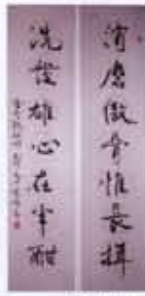 消磨傲骨惟長揖
洗發雄心在半酣